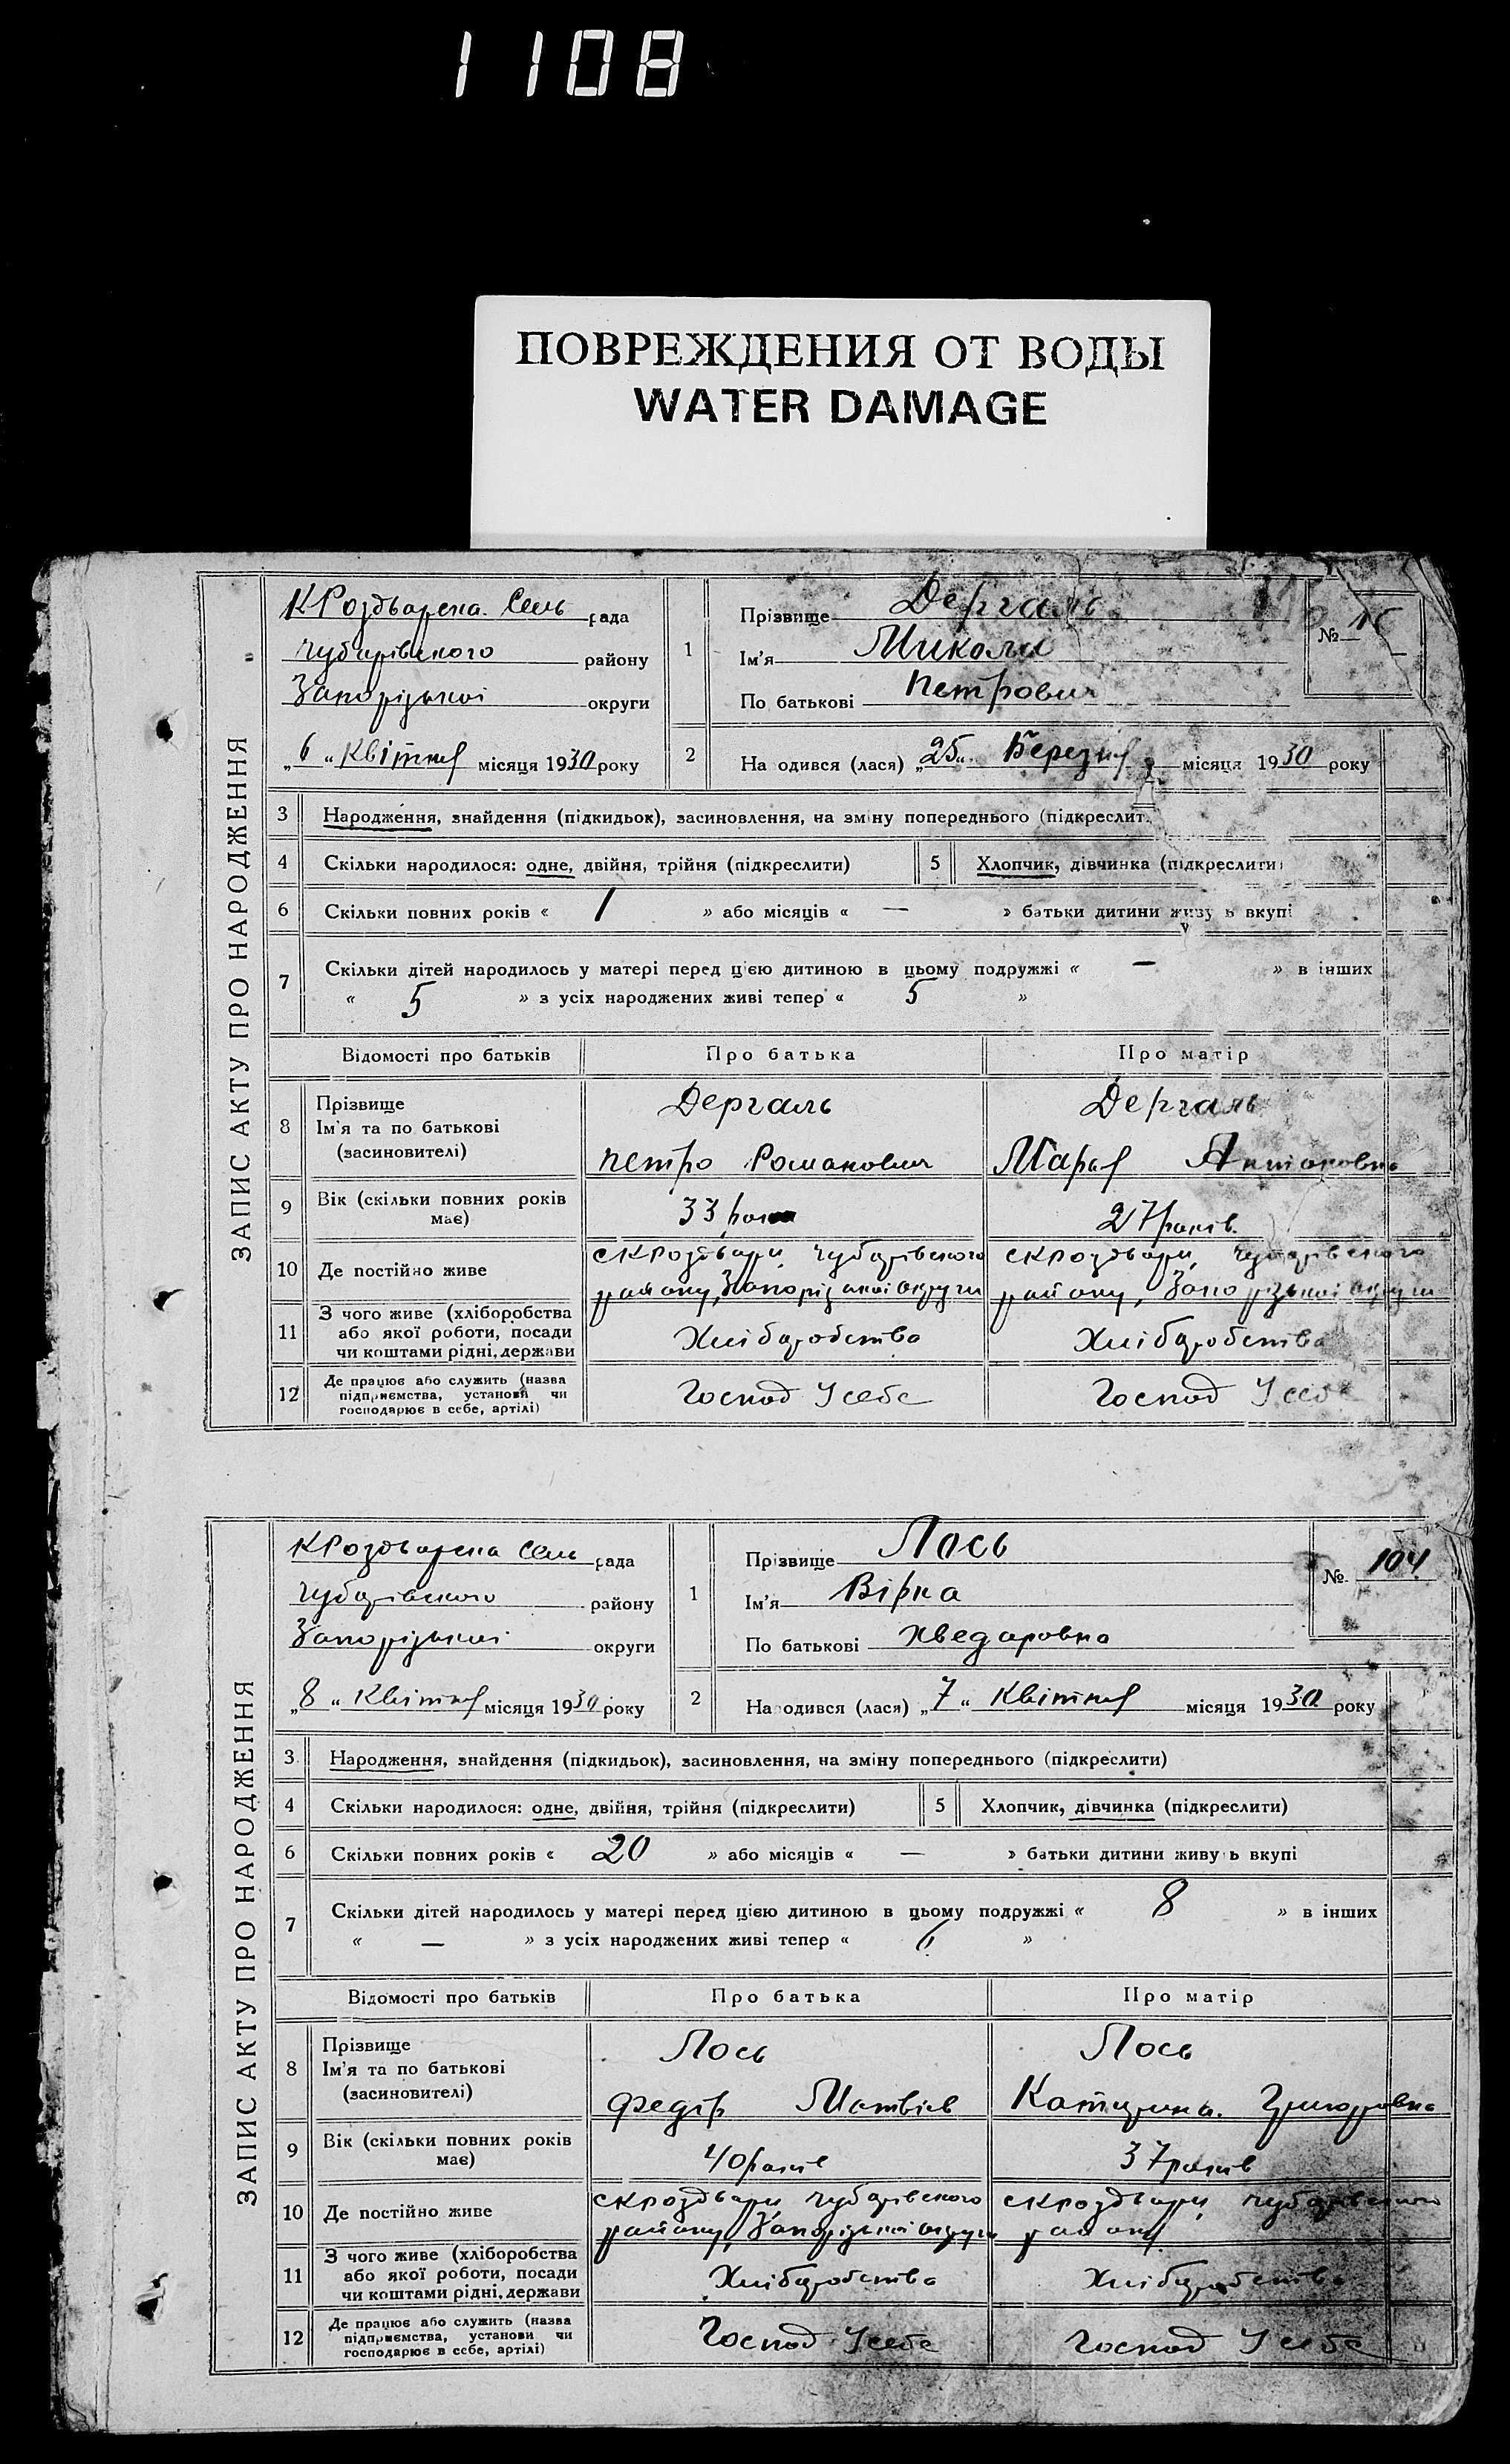 1108
ПОВРЕЖДЕНИЯ ОТ ВОДЫ
WATER DAMAGE
ЗАПИС АКТУ ПРО НАРОДЖЕННЯ
рада
Чубарівського району
Запорізької округи
„6“ Квітня місяця 1930 року
1
Прізвище Дергаль
Ім'я Микола
По батькові Петрович
№
2
На одився (лася) „25“ Березня місяця 1930 року
3 Народження, знайдення (підкидьок), засиновлення, на зміну попереднього (підкреслит
4 Скільки народилося: одне, двійня, трійня (підкреслити)
5 Хлопчик, дівчинка (підкреслити)
6 Скільки повних років « 1 » або місяців « — » батьки дитини живу ь вкупі
7 Скільки дітей народилось у матері перед цією дитиною в цьому подружжі « — » в інших
« 5 » з усіх народжених живі тепер « 5 »
Відомості про батьків
Про батька
Про матір
8 Прізвище
Ім'я та по батькові
(засиновителі)
Дергаль
Петро Романович
Дергаль
Марія Антоновна
9 Вік (скільки повних років
має)
33 роки
27 років
10 Де постійно живе
Чубарівського
району, Запорізької округи
Чубарівського
району, Запорізької округи
11 З чого живе (хліборобства
або якої роботи, посади
чи коштами рідні, держави
Хліборобство
Хліборобство
12 Де працює або служить (назва
підприємства, установи чи
господарює в себе, артілі)
Господ У себе
Господ У себе
ЗАПИС АКТУ ПРО НАРОДЖЕННЯ
рада
Чубарівського району
Запорізької округи
„8“ Квітня місяця 1930 року
1
Прізвище Лось
Ім'я Вірка
По батькові Хведоровна
№ 104
2
На одився (лася) „7“ Квітня місяця 1930 року
3 Народження, знайдення (підкидьок), засиновлення, на зміну попереднього (підкреслити)
4 Скільки народилося: одне, двійня, трійня (підкреслити)
5 Хлопчик, дівчинка (підкреслити)
6 Скільки повних років « 20 » або місяців « — » батьки дитини живу ь вкупі
7 Скільки дітей народилось у матері перед цією дитиною в цьому подружжі « 8 » в інших
« — » з усіх народжених живі тепер « 6 »
Відомості про батьків
Про батька
Про матір
8 Прізвище
Ім'я та по батькові
(засиновителі)
Лось
Федір Матвіїв
Лось
Катерина Григоровна
9 Вік (скільки повних років
має)
40 років
37 років
10 Де постійно живе
Чубарівського
району, Запорізької округи
Чубарівського
району
11 З чого живе (хліборобства
або якої роботи, посади
чи коштами рідні, держави
Хліборобство
Хліборобство
12 Де працює або служить (назва
підприємства, установи чи
господарює в себе, артілі)
Господ У себе
Господ У себе